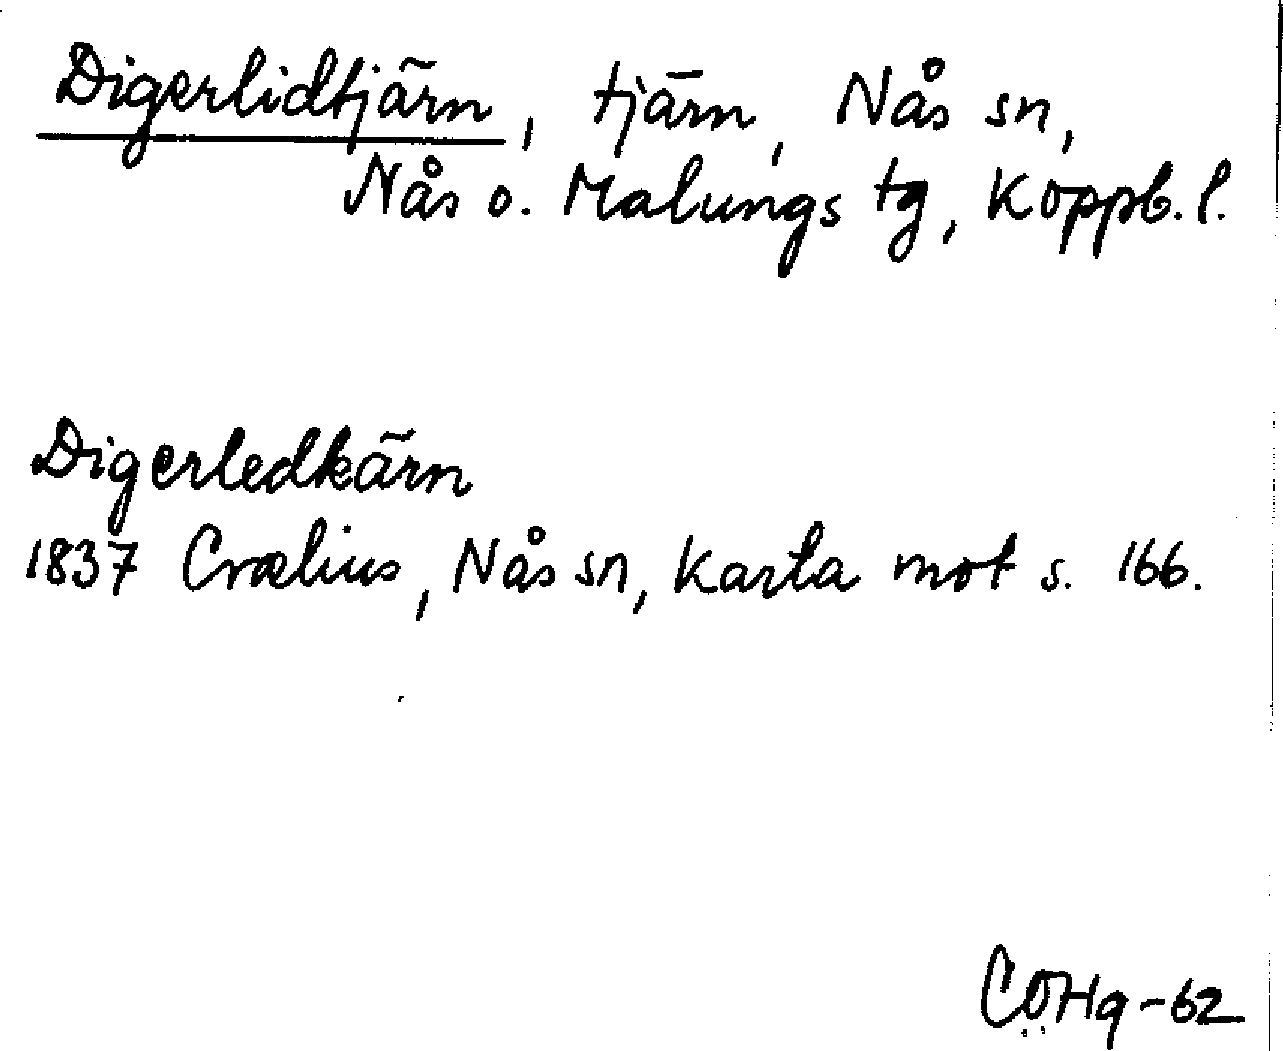 Digerlidtjärn, tjärn, Nås sn,
Nås o. Malungs tg, Koppb. l.
Digerledkärn
1837 Crælius, Nås sn, Karta mot s. 166.
CÖHg-62